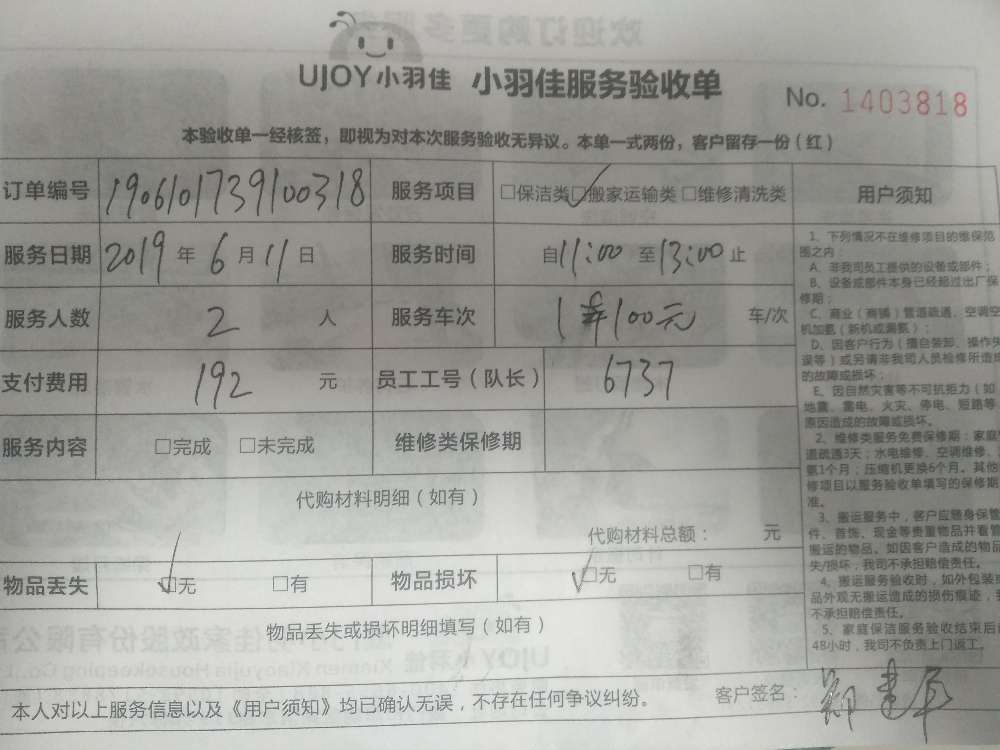 UJOY小羽佳 小羽佳服务验收单 No. 1403818
本验收单一经核签，即视为对本次服务验收无异议。本单一式两份，客户留存一份（红）
订单编号 1906101739100318 服务项目 □保洁类 ☑搬家运输类 □维修清洗类
服务日期 2019 年 6 月 11 日 服务时间 自 11:00 至 13:00 止
服务人数 2 人 服务车次 1 100元 车/次
支付费用 192 元 员工工号（队长） 6737
服务内容 □完成 □未完成 维修类保修期
代购材料明细（如有）
代购材料总额： 元
物品丢失 ☑无 □有 物品损坏 ☑无 □有
物品丢失或损坏明细填写（如有）
本人对以上服务信息以及《用户须知》均已确认无误，不存在任何争议纠纷。 客户签名：
用户须知
1、下列情况不在维修项目的维保范
围之内：
A、非我司员工提供的设备或部件；
B、设备或部件本身已经超过出厂保
修期；
C、商业（商铺）管道疏通、空调空
机加氨（新机或漏氨）；
D、因客户行为（擅自装卸、操作失
误等）或另请非我司人员检修所造成
的故障或损坏；
E、因自然灾害等不可抗拒力（如
地震、雷电、火灾、停电、短路等
原因造成的故障或损坏。
2、维修类服务免费保修期：家庭管
道疏通3天；水电维修、空调维修、
氨1个月；压缩机更换6个月。其他
修项目以服务验收单填写的保修期
准。
3、搬运服务中，客户应随身保管
件、首饰、现金等贵重物品并看管
搬运的物品。如因客户造成的物品
失/损坏，我司不承担赔偿责任。
4、搬运服务验收时，如外包装
品外观无搬运造成的损伤痕迹，
不承担赔偿责任。
5、家庭保洁服务验收结束后
48小时，我司不负责上门返工。